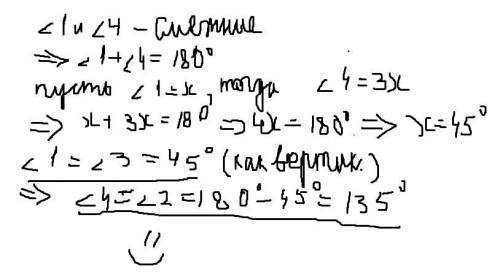 ∠1 и ∠4 – смежные
⇒ ∠1+∠4=180°
пусть ∠1=x, тогда ∠4=3x
⇒ x+3x=180° ⇒ 4x=180° ⇒ x=45°
∠1=∠3=45° (как вертик.)
⇒ ∠4=∠2=180°-45°=135°